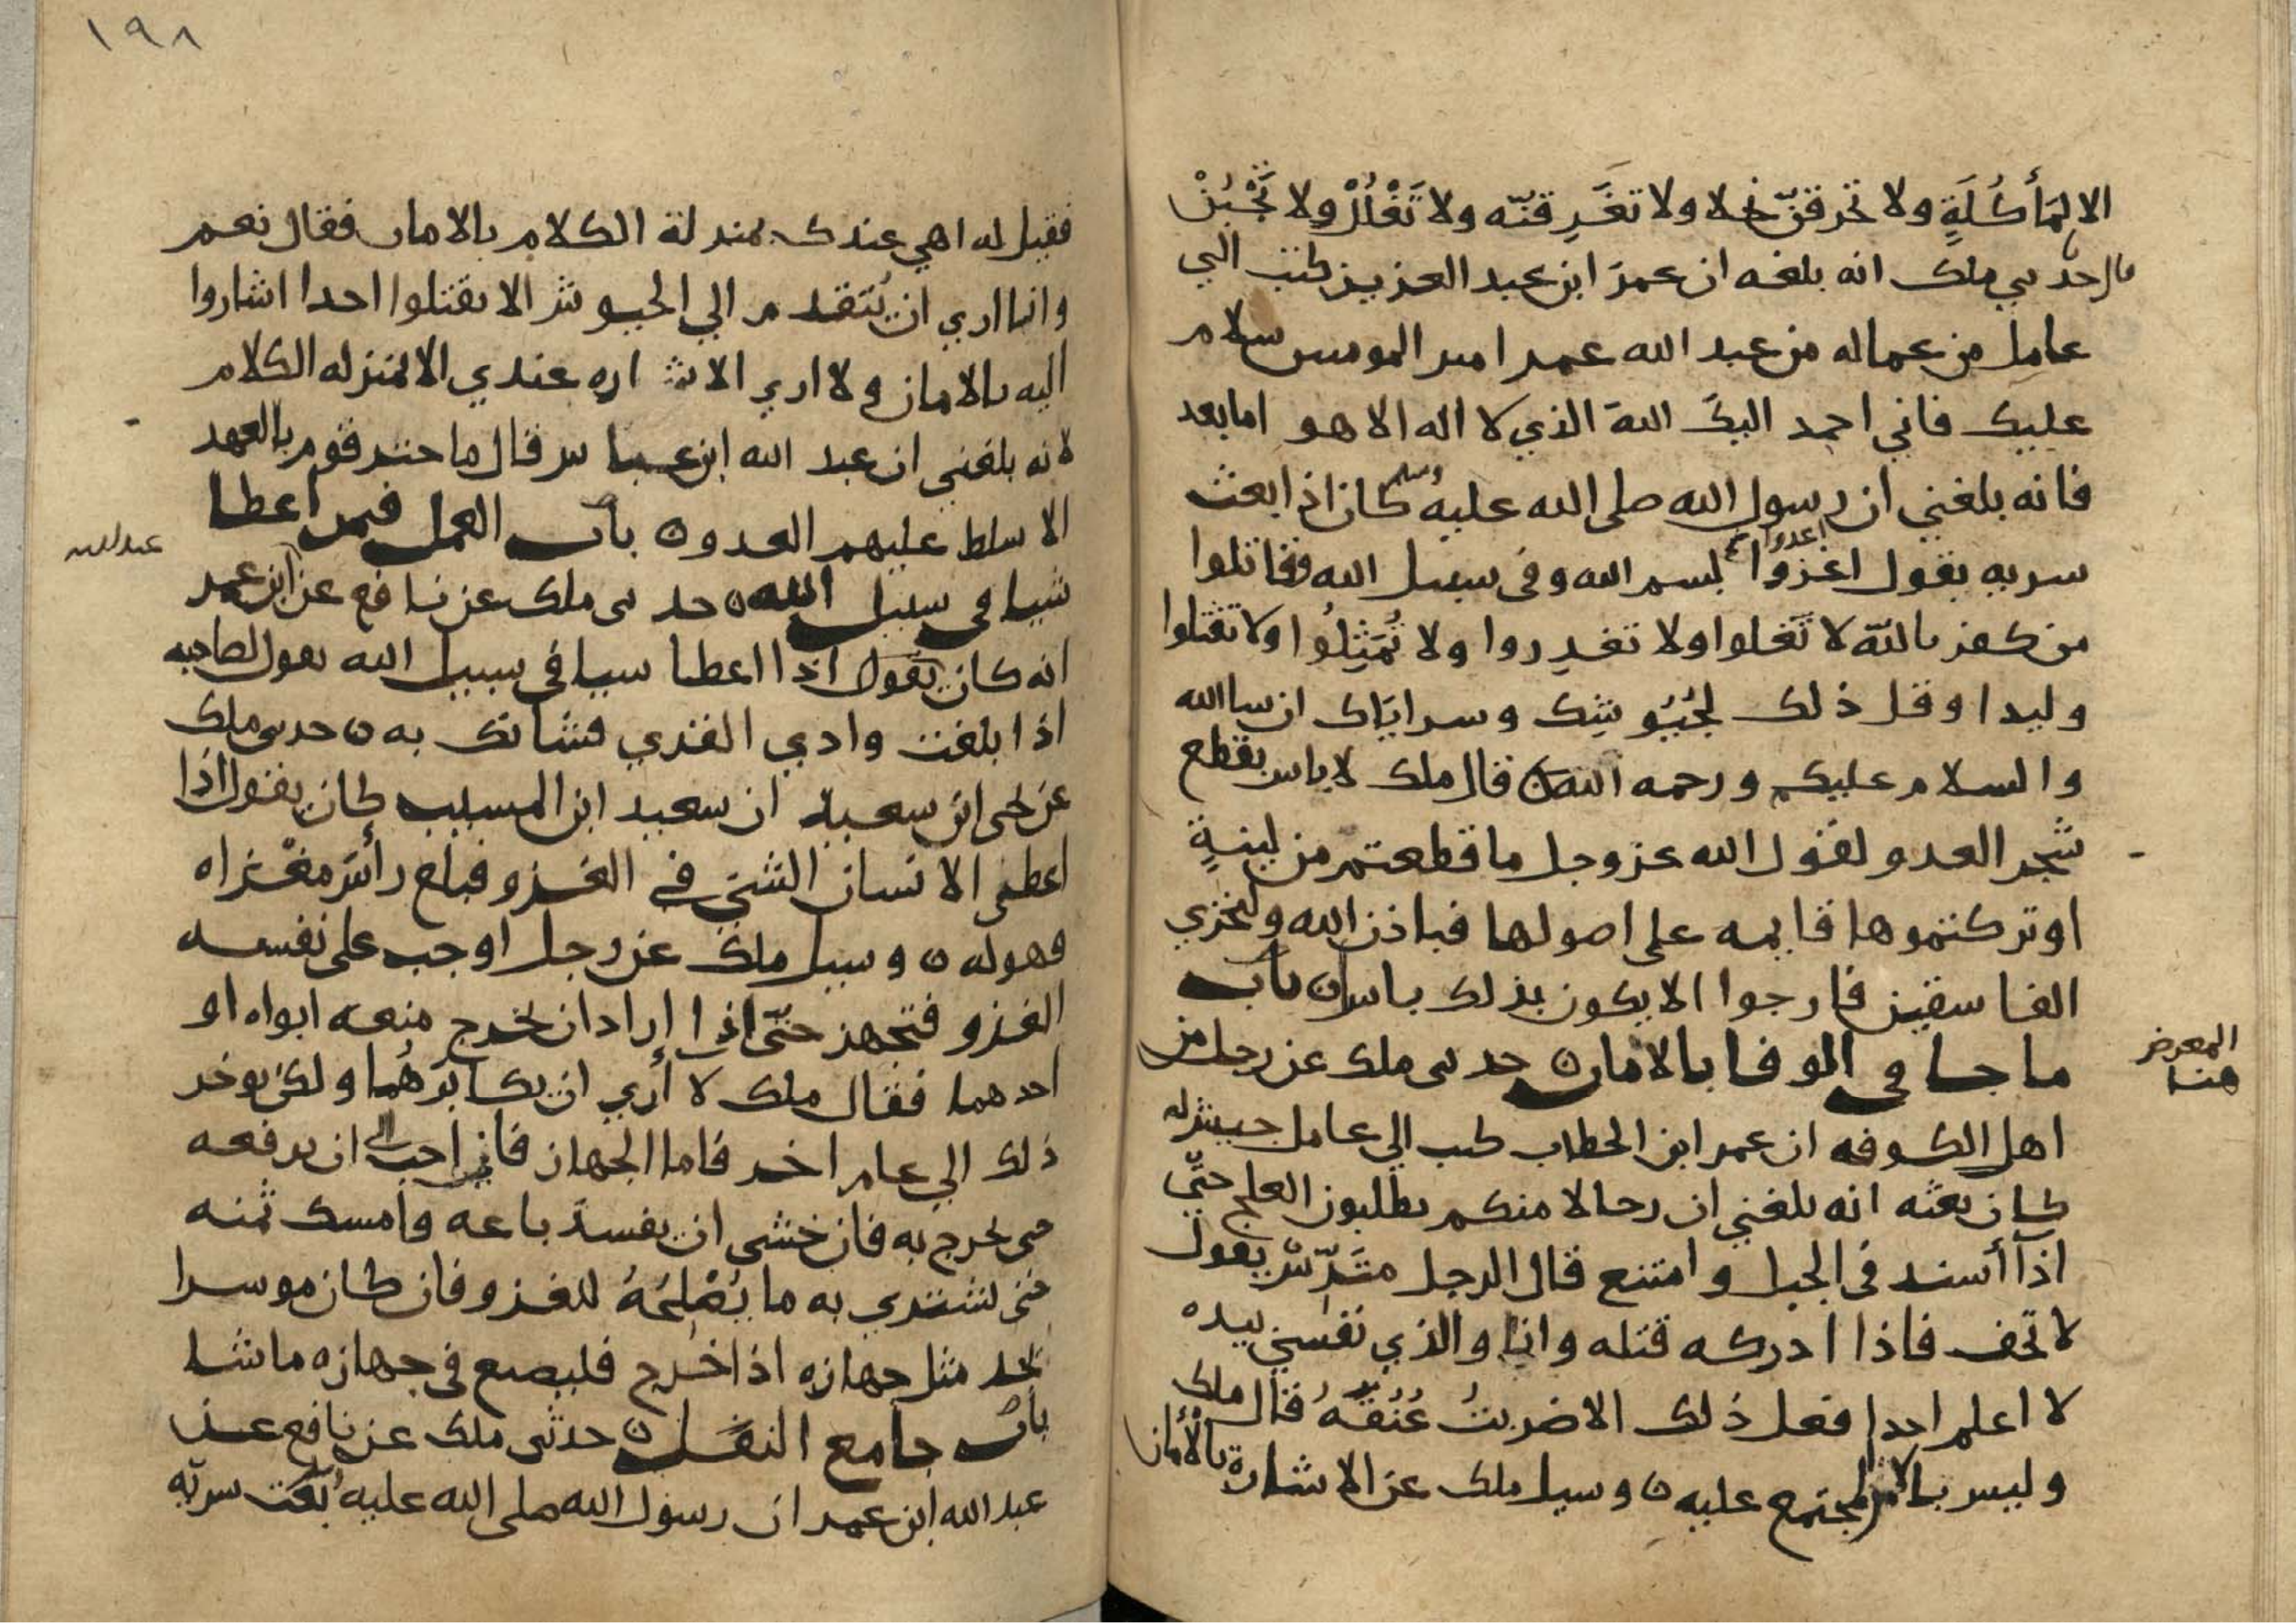 الا لمأكُلَةٍ ولا تحرقنّ نخلا ولا تغَرِقنّه ولا تَغْلُلْ ولا تَجْبُنْ
قال حدثني ملك انه بلغه ان عمرَ ابن عبد العزيز كتب الي
عامِل من عماله من عبد الله عمر امير المومنين سلام
عليك فاني احمد اليكَ اللهَ الذي لا اله الا هو اما بعد
فانه بلغني ان رسول الله صلى الله عليه وسلم كان اذا بعث
سريه يقول اغزوا بسم الله وفي سبيل الله وقاتلوا
اغدوا
من كفر بالله لا تَغلوا ولا تغدِروا ولا تُمَثِلُوا ولا تقتلوا
وليدا وقل ذلك لجُيُوشِك وسراياك ان شا الله
والسلام عليكم ورحمه الله ن قال ملك لا باس بقطع
شجر العدو لقول الله عز وجل ما قطعتم من لينةٍ
او تركتموها قايمه على اصولها فباذن الله وليخزي
الفاسقين فارجوا الا يكون بذلك باس ن باب
ما جا في الوفا بالامان ن حدثني ملك عن رجل من
المعرض
هنا
اهل الكوفه ان عمر ابن الخطاب كتب الي عامل جيش له
كان بعثه انه بلغني ان رجالا منكم يطلبون العلج حتّي
اذا أسند في الجبل وامتنع قال الرجل متَرّسْ يقول
لا تخف فاذا ادركه قتله وانا والذي نفسي بيده
لا اعلم احدا فعل ذلك الا ضربتُ عُنُقهُ قال ملك
وليس بالامر المجتمع عليه ن وسيل ملك عن الاشارة بالأمان
١٩٨
فقيل له اهي عندك بمنزلة الكلام بالامان فقال نعم
وانا اري ان يُتقدم الي الجيوش الا يقتلوا احدا اشاروا
اليه بالامان ولا اري الاشاره عندي الا بمنزله الكلام
لانه بلغني ان عبد الله ابن عباس قال ما ختر قوم بالعهد
الا سلط عليهم العدو ن باب العمل فيمن اعطا
شيا في سبيل الله ن حدثني ملك عن نافع عن ابن عمر
عبد الله
انه كان يقول اذا اعطا شيا في سبيل الله يقول لصاحبه
اذا بلغت وادي القري فشانك به ن حدثني ملك
عن يحيى ابن سعيد ان سعيد ابن المسيب كان يقول اذا
اعطي الانسان الشي في الغزو فبلغ رأسَ مغْزاه
فهو له ن وسيل ملك عن رجل اوجب على نفسه
الغزو فتجهز حتّى اذا اراد ان يخرج منعه ابواه او
احدهما فقال ملك لا أري ان يكابرَهُما ولكن يوخر
ذلك الي عام اخر فاما الجهاز فاني احب الي ان يرفعه
حتى يخرج به فان خشي ان يفسدَ باعه وامسك ثمنه
حتى يشتري به ما يُصْلِحُهُ للغزو فان كان موسرا
يجد مثل جهازه اذا خرج فليصنع في جهازه ما شا
باب جامع النفَل ن حدثنى ملك عن نافع عن
عبد الله ابن عمر ان رسول الله صلى الله عليه بَعَث سريّه